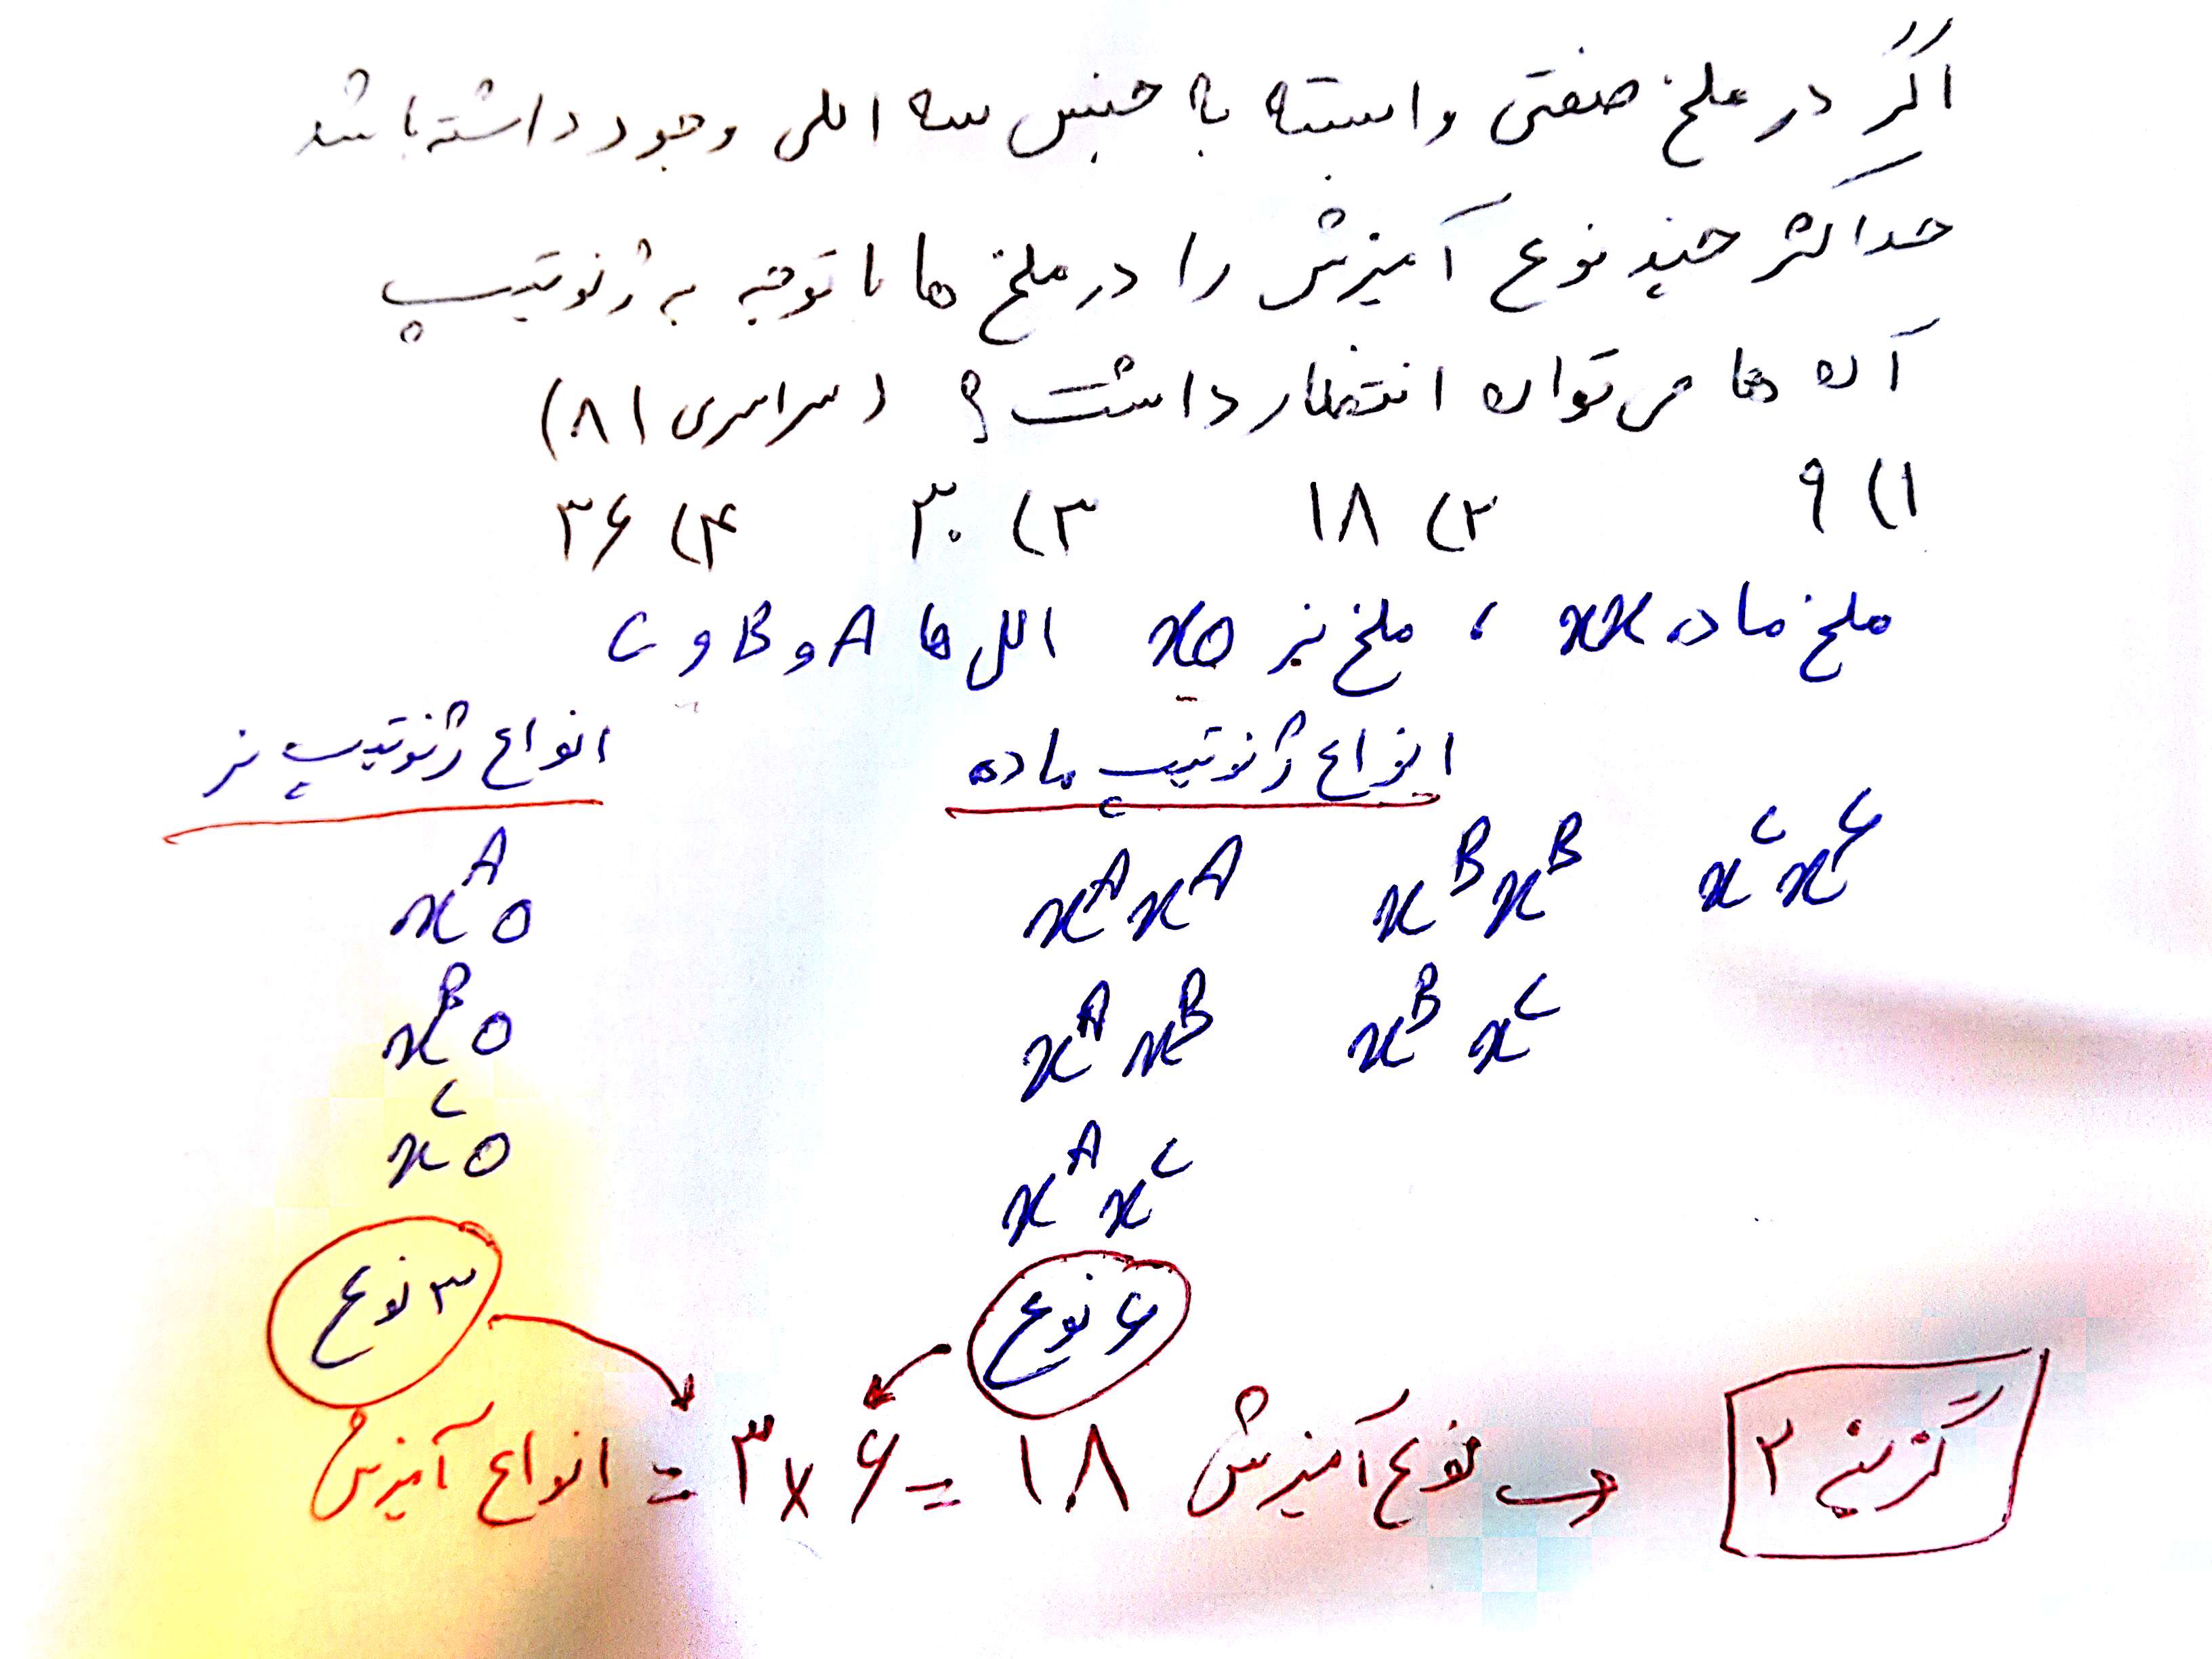 اگر در ملخ صفتی وابسته به جنس سه اللی وجود داشته باشد
حداکثر چند نوع آمیزش را در ملخ ها با توجه به ژنوتیپ
آن ها می توان انتظار داشت؟ (سراسری ۸۱)
۱) ۹ ۲) ۱۸ ۳) ۳۰ ۴) ۳۶
ملخ ماده xx ، ملخ نر xO الل ها A و B و C
انواع ژنوتیپ ماده انواع ژنوتیپ نر
x^A x^A x^B x^B x^C x^C x^A O
x^A x^B x^B x^C x^B O
x^A x^C x^C O
۶ نوع ۳ نوع
انواع آمیزش = ۳ × ۶ = ۱۸ نوع آمیزش → گزینه ۲